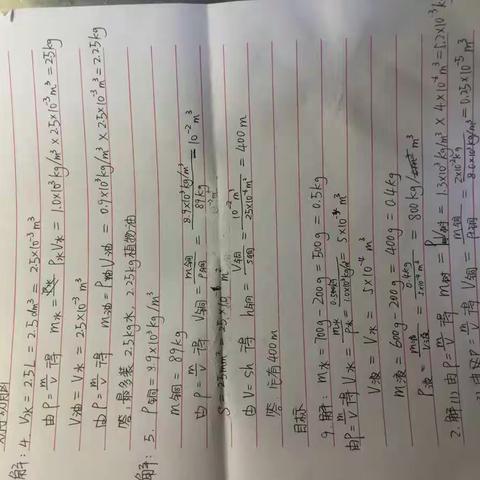 解: 4. V水 = 2.5L = 2.5dm³ = 2.5×10⁻³m³
由ρ=m/V得 m水=ρ水V水 = 1.0×10³kg/m³ × 2.5×10⁻³m³ = 2.5kg
V油 = V水 = 2.5×10⁻³m³
由ρ=m/V得 m油=ρ油V油 = 0.9×10³kg/m³ × 2.5×10⁻³m³ = 2.25kg
答: 最多装2.5kg水, 2.25kg植物油
解: 5. ρ铜 = 8.9×10³kg/m³
m铜=89kg
由ρ=m/V得 V铜=m铜/ρ铜=89kg/8.9×10³kg/m³=10⁻²m³
S=25mm²=25×10⁻⁶m²
由V=Sh得 h铜=V铜/S铜=10⁻²m³/25×10⁻⁶m²=400m
答: 它有400m
目标
9. 解: m水=700g-200g=500g=0.5kg
由ρ=m/V得V水=m水/ρ水=0.5kg/1.0×10³kg/m³=5×10⁻⁴m³
V液=V水=5×10⁻⁴m³
m液=600g-200g=400g=0.4kg
ρ液=m液/V液=0.4kg/5×10⁻⁴m³=800kg/m³
2. 解(1)由ρ=m/V得 =1.3×10³kg/m³×4×10⁻⁴m³
由ρ=m/V得 V铜=m铜/ρ铜= =0.25×10⁻⁵m³